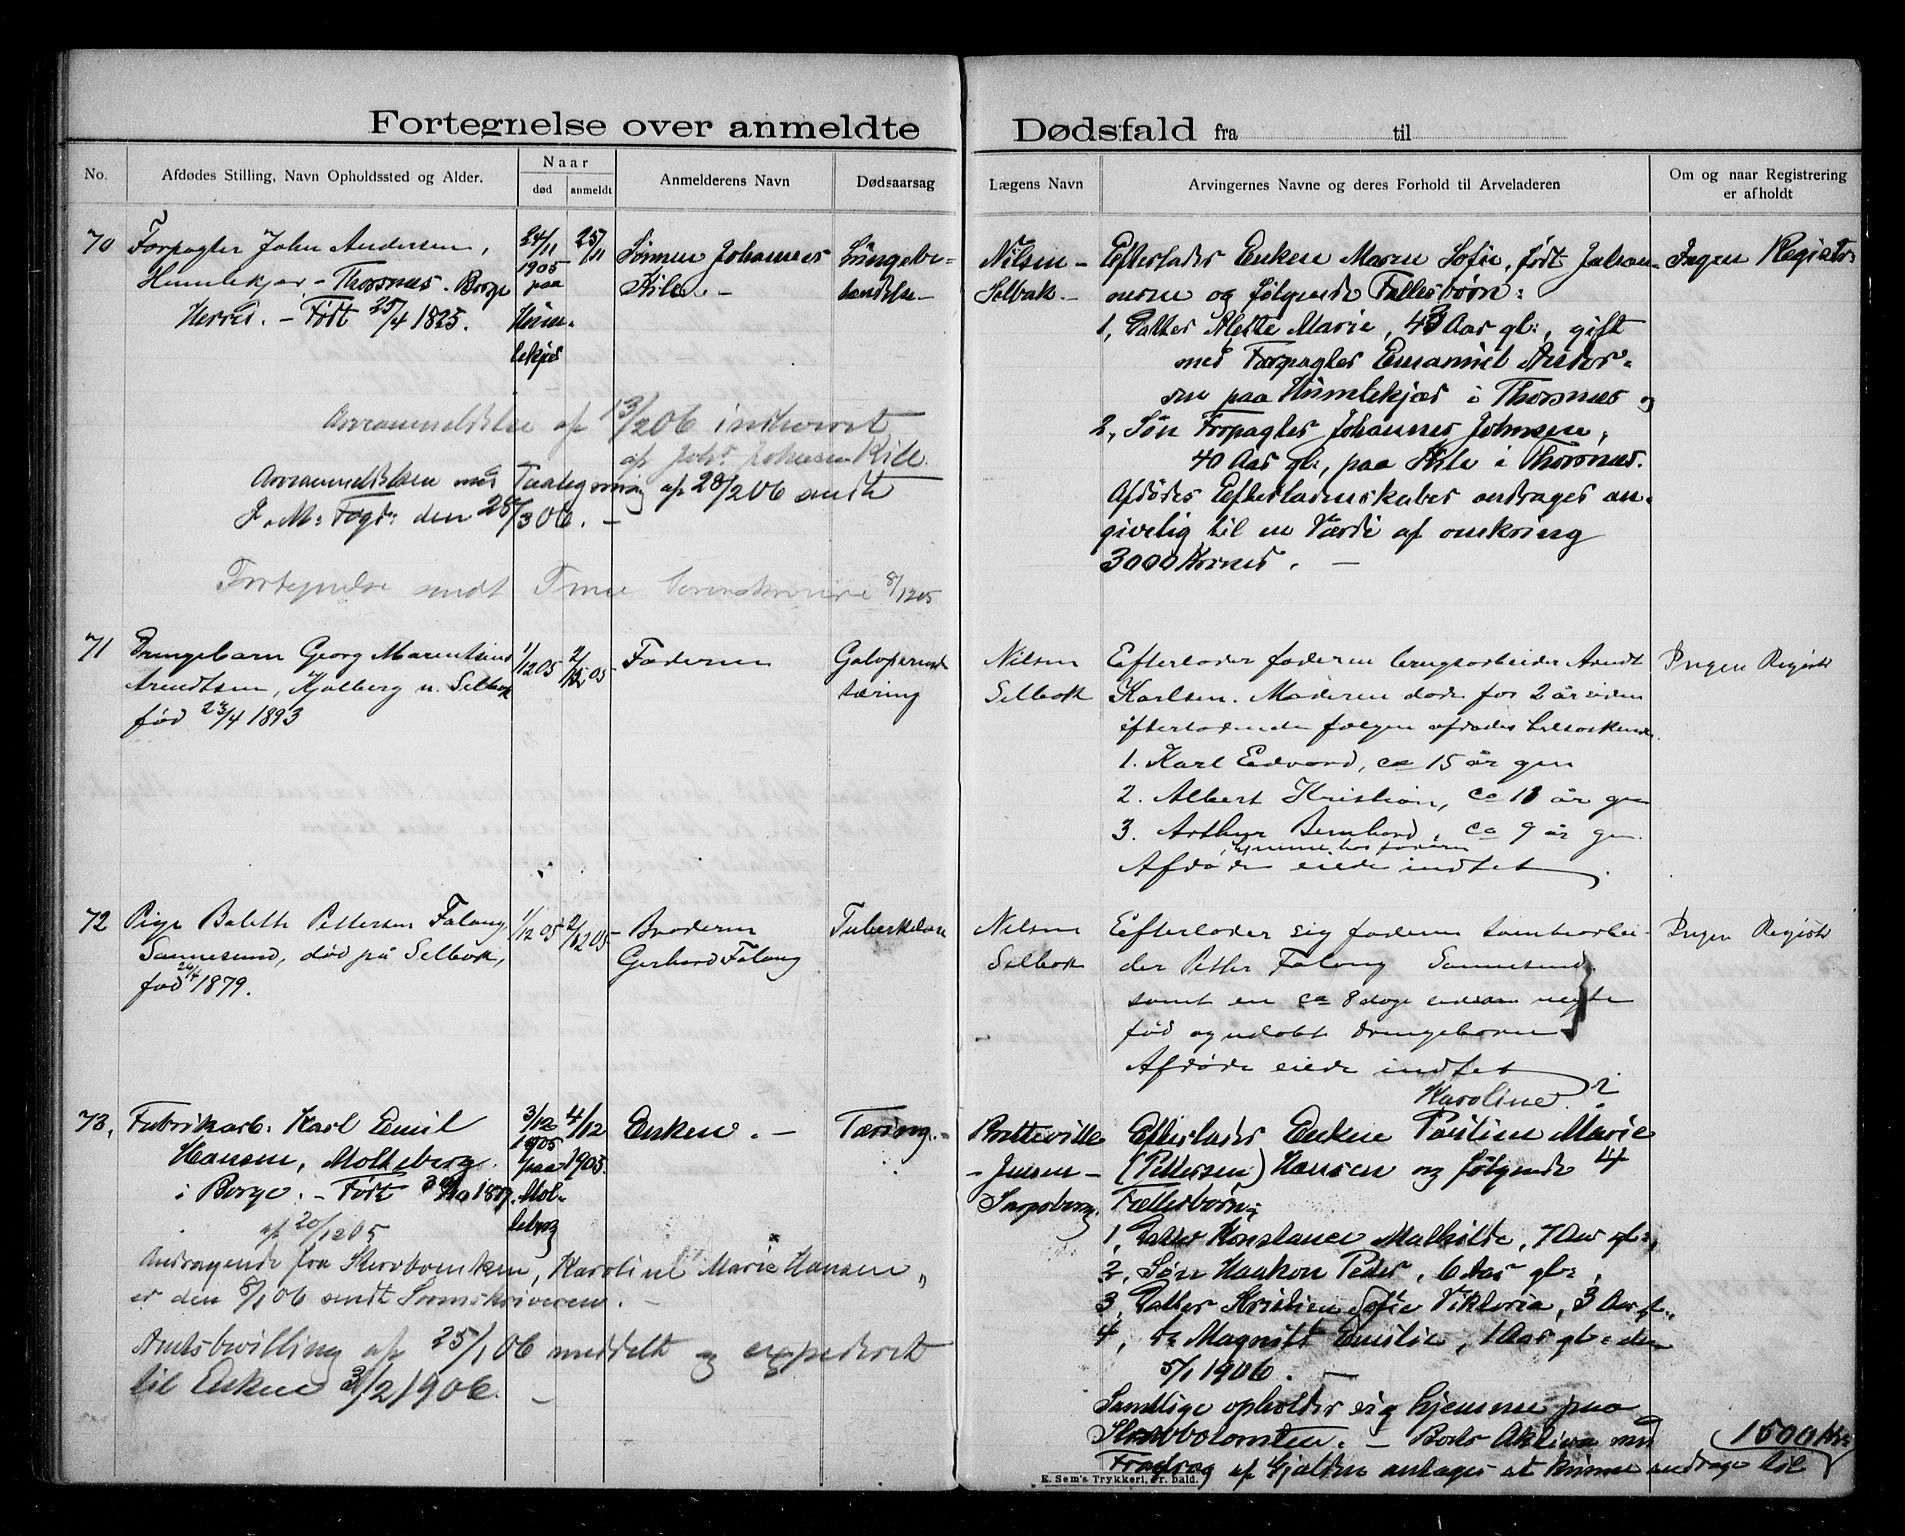 Fortegnelse over anmeldte Dødsfald fra til
No.
Afdødes Stilling, Navn Opholdssted og Alder.
Naar
død
anmeldt
Anmelderens Navn
Dødsaarsag
Lægens Navn
Arvingernes Navne og deres Forhold til Arveladeren
Om og naar Registrering
er afholdt
70
Forpagter John Andersen,
Humlekjær - Thorsnæs. Borge
Herred. - Født 25/4 1825.
24/11
1905
paa
Humlekjær
25/11
Sønnen Johannes
Kile. -
Lungebe-
tændelse -
Nilsen -
Selbak. -
Efterlader Enken Maren Sofie, født Johan-
nesen og følgende Fællesbørn:
1, Datter Alette Marie, 43 Aar gl:, gift
med Forpagter Emanuel Ander-
sen paa Humlekjær i Thorsnæs og
2, Søn Forpagter Johannes Johnsen,
40 Aar gl:, paa Kile i Thorsnæs.
Afdødes Efterladenskaber andrages an-
givelig til en Værdi af omkring
3000 Kroner. -
Ingen Registr:
Arveanmeldelse af 13/2 06 indleveret
af Johs. Johnsen Kile.
Arveanmeldelsen med Paategning af 28/2 06 sendt
F. M: Fogd: den 28/3 06. -
Fortegnelse sendt Tune Sorenskriveri 8/12 05
71
Drengebarn Georg Marentius
Arendtsen, Kjølberg u. Selbak
fød 23/4 1893
1/12 05
2/12 05
Faderen
Galoperende
tæring
Nilsen
Selbak
Efterlader faderen brugsarbeider Arendt
Karlsen. Moderen døde for 2 år siden
efterladende følgen afdødes helsøskende.
1. Karl Edvard, ca 15 år gen
2. Albert Kristian, ca 11 år gen
3. Arthur Bernhard, ca 9 år gen.
hjemme hos faderen
Afdøde eiede indtet
Ingen Registr
72
Pige Balette Pettersen Falang
Sannesund, død på Selbak,
fød 26/4 1879.
1/12 05
2/12 05
Broderen
Gerhard Falang
Tuberkelose
Nilsen
Selbak
Efterlader sig faderen tomtearbei-
der Petter Falang Sannesund
samt en ca 8 dage siden uegte
fød og udøbt drengebarn
Afdøde eiede indtet
Ingen Registr
73,
Fabrikarb: Karl Emil
Hansen, Molteberg
i Borge. - Født
3/12
1905
paa
Mol-
teberg
4/12
1905.
Enken. -
Tæring. -
Bretteville
- Jensen -
Sarpsborg.
Karoline ?
Efterlader Enken Pauline Marie
(Pettersen) Hansen og følgende 4
Fællesbørn:
1, Datter Konstance Mathilde, 7 Aar gl:,
2, Søn Haakon Peder, 6 Aar gl:,
3, Datter Kristine Sofie Viktoria, 3 Aar gl:,
4, do Magnhilt Emilie, 1 Aar gl: den
5/1 1906. -
Samtlige opholder sig hjemme paa
- Boets Aktiva med
Fradrag af Gjælden antages at kunne andrage til
1500 Kr:
af 20/12 05
Andragende fra Skovboenken, Karoline Marie Hansen,
er den 8/1 06 sendt Sorenskriveren. -
Amtsbevilling af 25/1 06 meddelt og expederet
til Enken 3/2 1906. -
E. Sem's Trykkeri, Fr. hald.